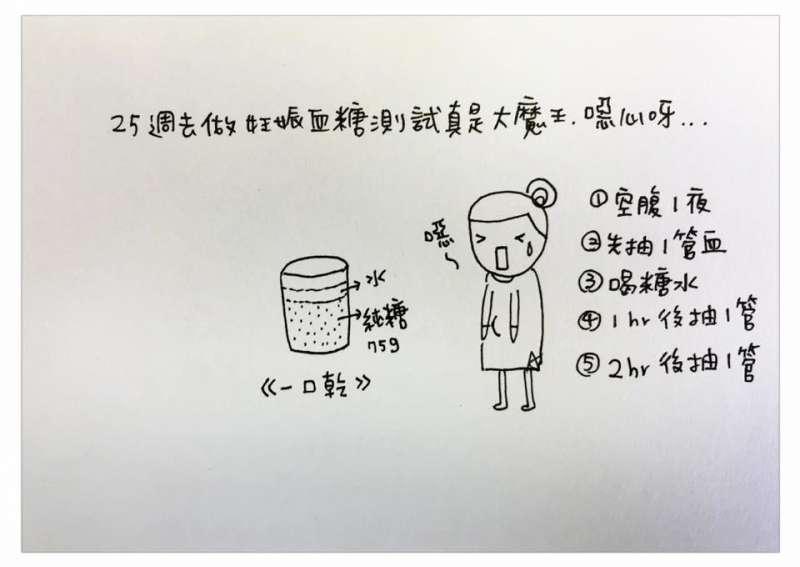 25週去做妊娠血糖測試真是大魔王.噁心呀...
噁~
水
純糖
75g
《一口乾》
①空腹1夜
②先抽1管血
③喝糖水
④1hr後抽1管
⑤2hr後抽1管